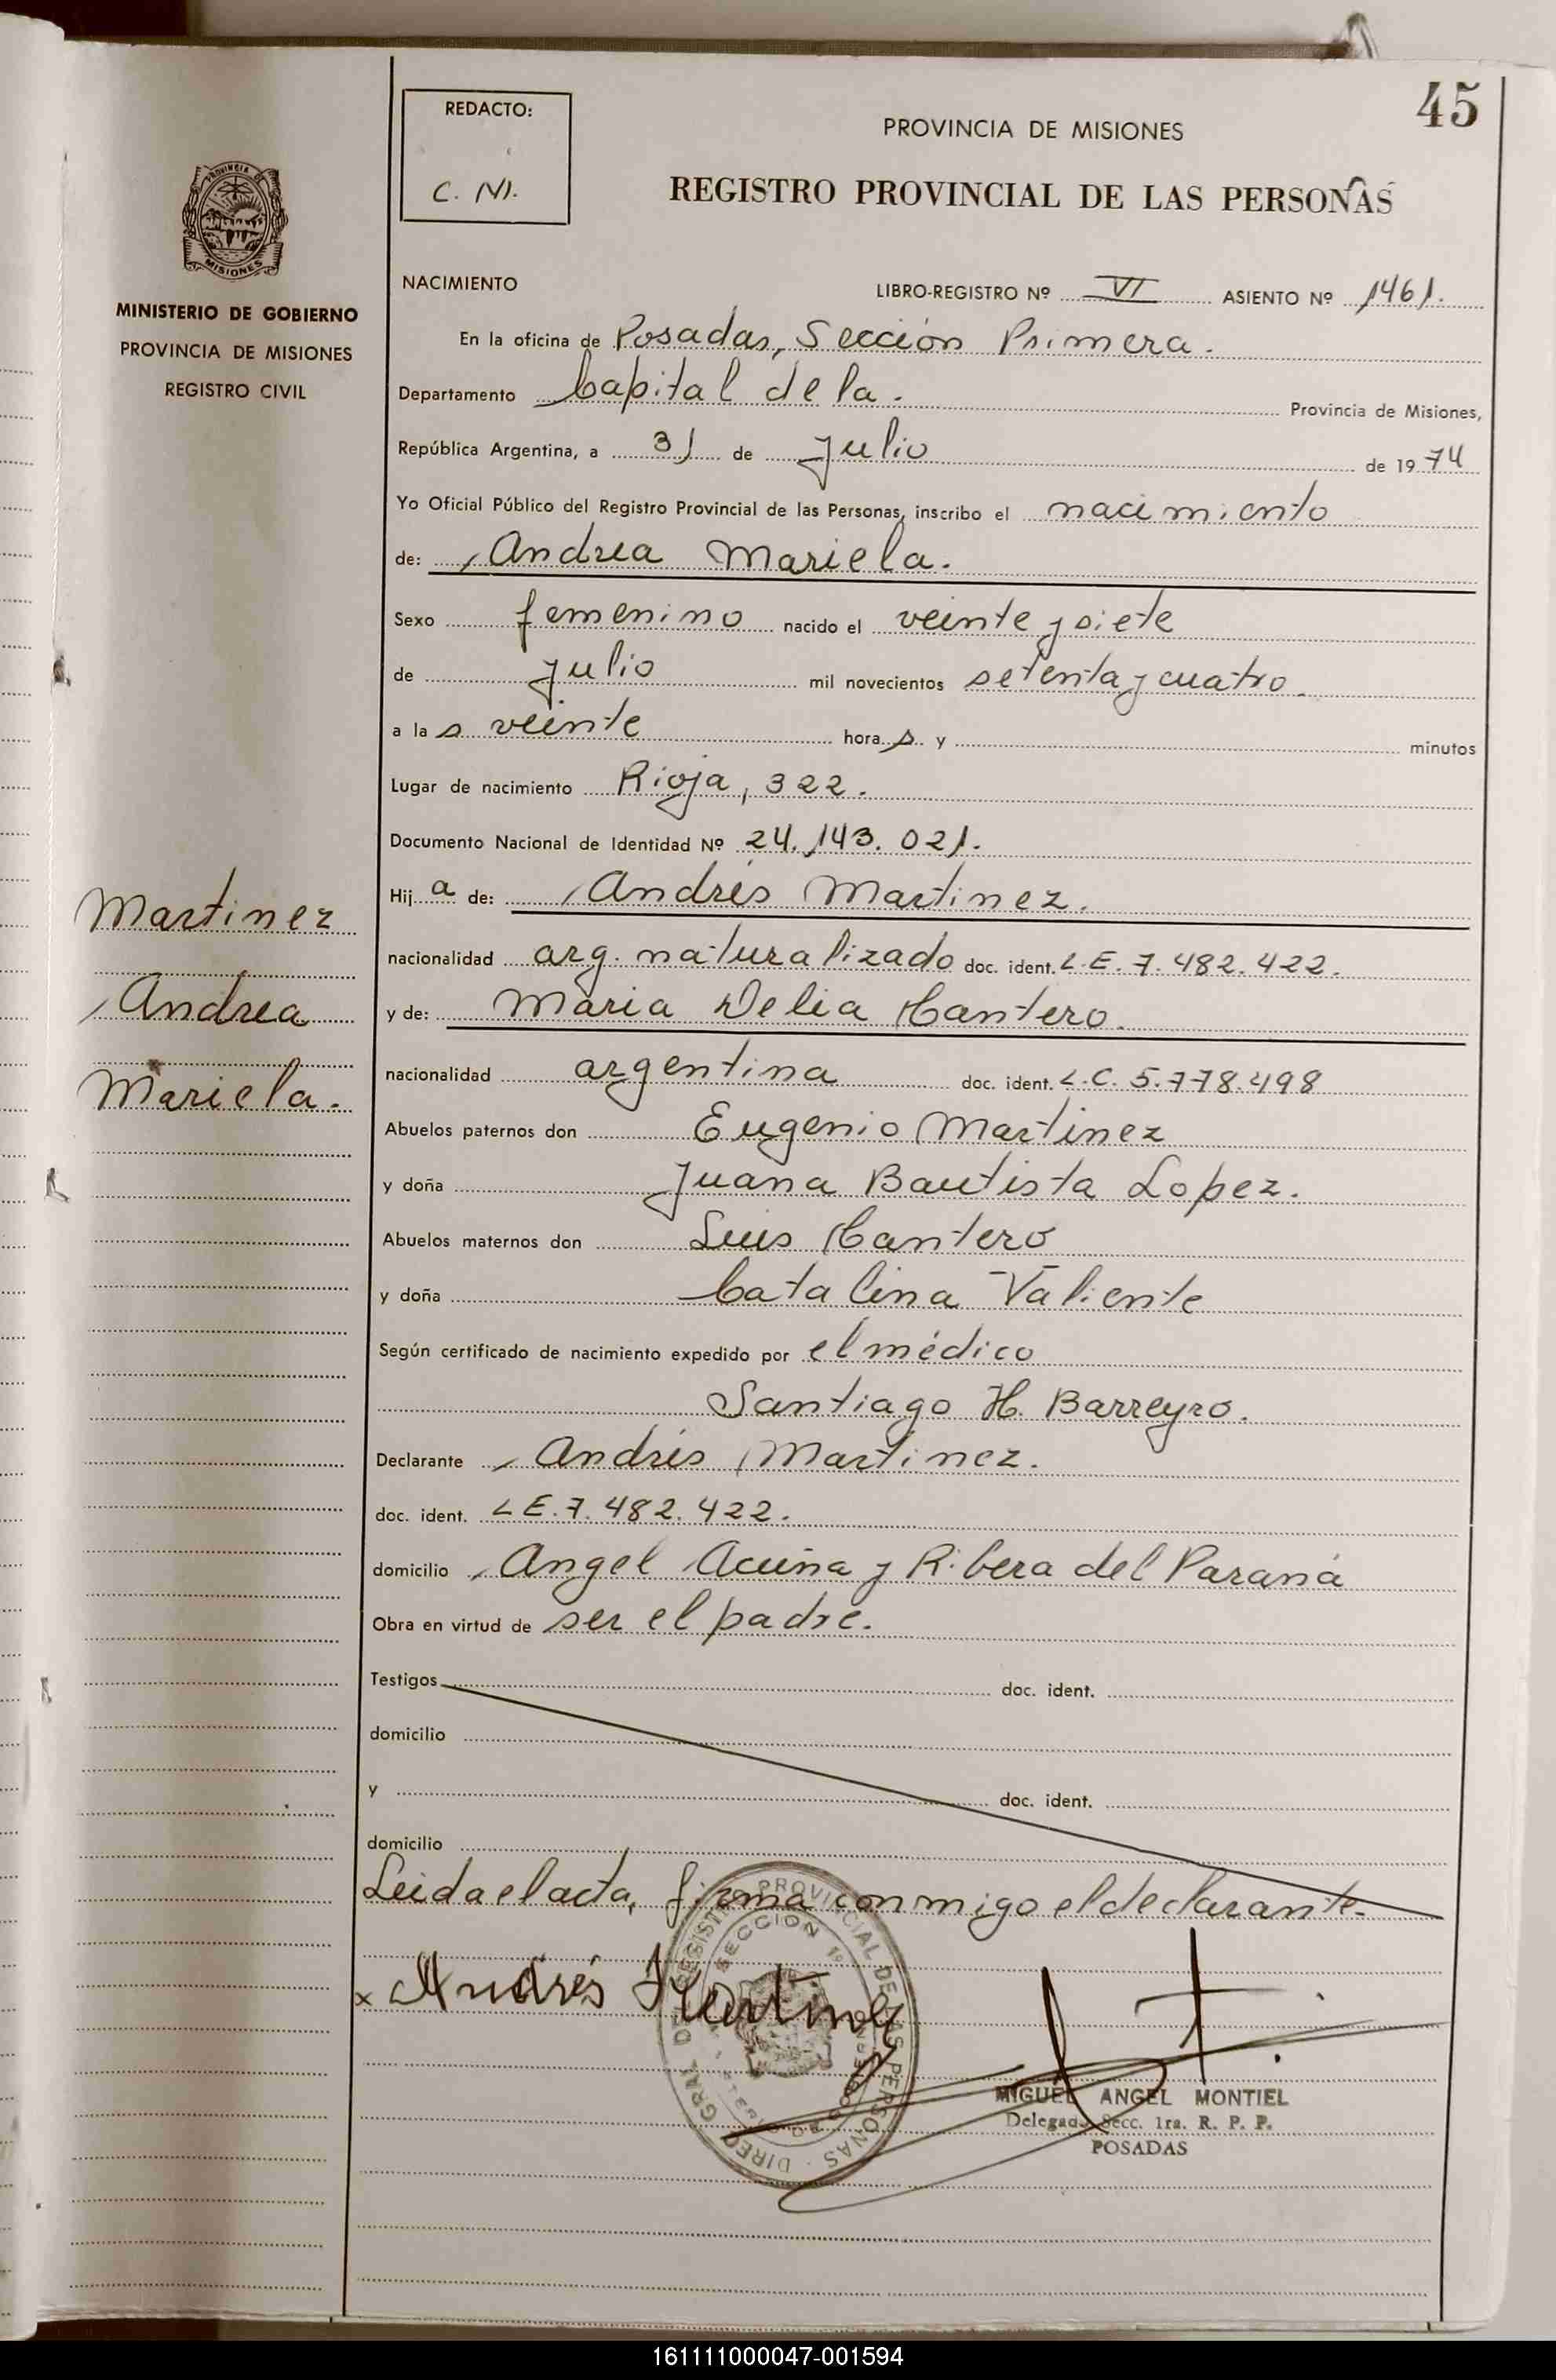 45
REDACTO:
C. N.
PROVINCIA DE MISIONES
REGISTRO PROVINCIAL DE LAS PERSONAS
PROVINCIA DE
MISIONES
MINISTERIO DE GOBIERNO
PROVINCIA DE MISIONES
REGISTRO CIVIL
NACIMIENTO LIBRO-REGISTRO Nº VI ASIENTO Nº 1461.
En la oficina de Posadas, Sección Primera.
Departamento Capital de la. Provincia de Misiones,
República Argentina, a 31 de Julio de 1974
Yo Oficial Público del Registro Provincial de las Personas, inscribo el nacimiento
de: Andrea Mariela.
Sexo femenino nacido el veinte y siete
de Julio mil novecientos setenta y cuatro.
a las veinte horas y minutos
Lugar de nacimiento Rioja, 322.
Documento Nacional de Identidad Nº 24.143.021.
Hija de: Andrés Martinez.
nacionalidad arg. naturalizado doc. ident. L.E. 7.482.422.
y de: Maria Delia Cantero.
nacionalidad argentina doc. ident. L.C. 5.778.498
Abuelos paternos don Eugenio Martinez
y doña Juana Bautista Lopez.
Abuelos maternos don Luis Cantero
y doña Catalina Valiente
Según certificado de nacimiento expedido por el médico
Santiago H. Barreyro.
Declarante Andrés Martinez.
doc. ident. L E. 7.482.422.
domicilio Angel Acuña y Ribera del Paraná
Obra en virtud de ser el padre.
Testigos doc. ident.
domicilio
y doc. ident.
domicilio
Leida el acta, firma conmigo el declarante.
Martinez
Andrea
Mariela.
x Andrés Martinez
DIREC. GRAL. DEL REGISTRO PROVINCIAL DE LAS PERSONAS
SECCION 1º
MIGUEL ANGEL MONTIEL
Delegado Secc. 1ra. R. P. P.
POSADAS
161111000047-001594